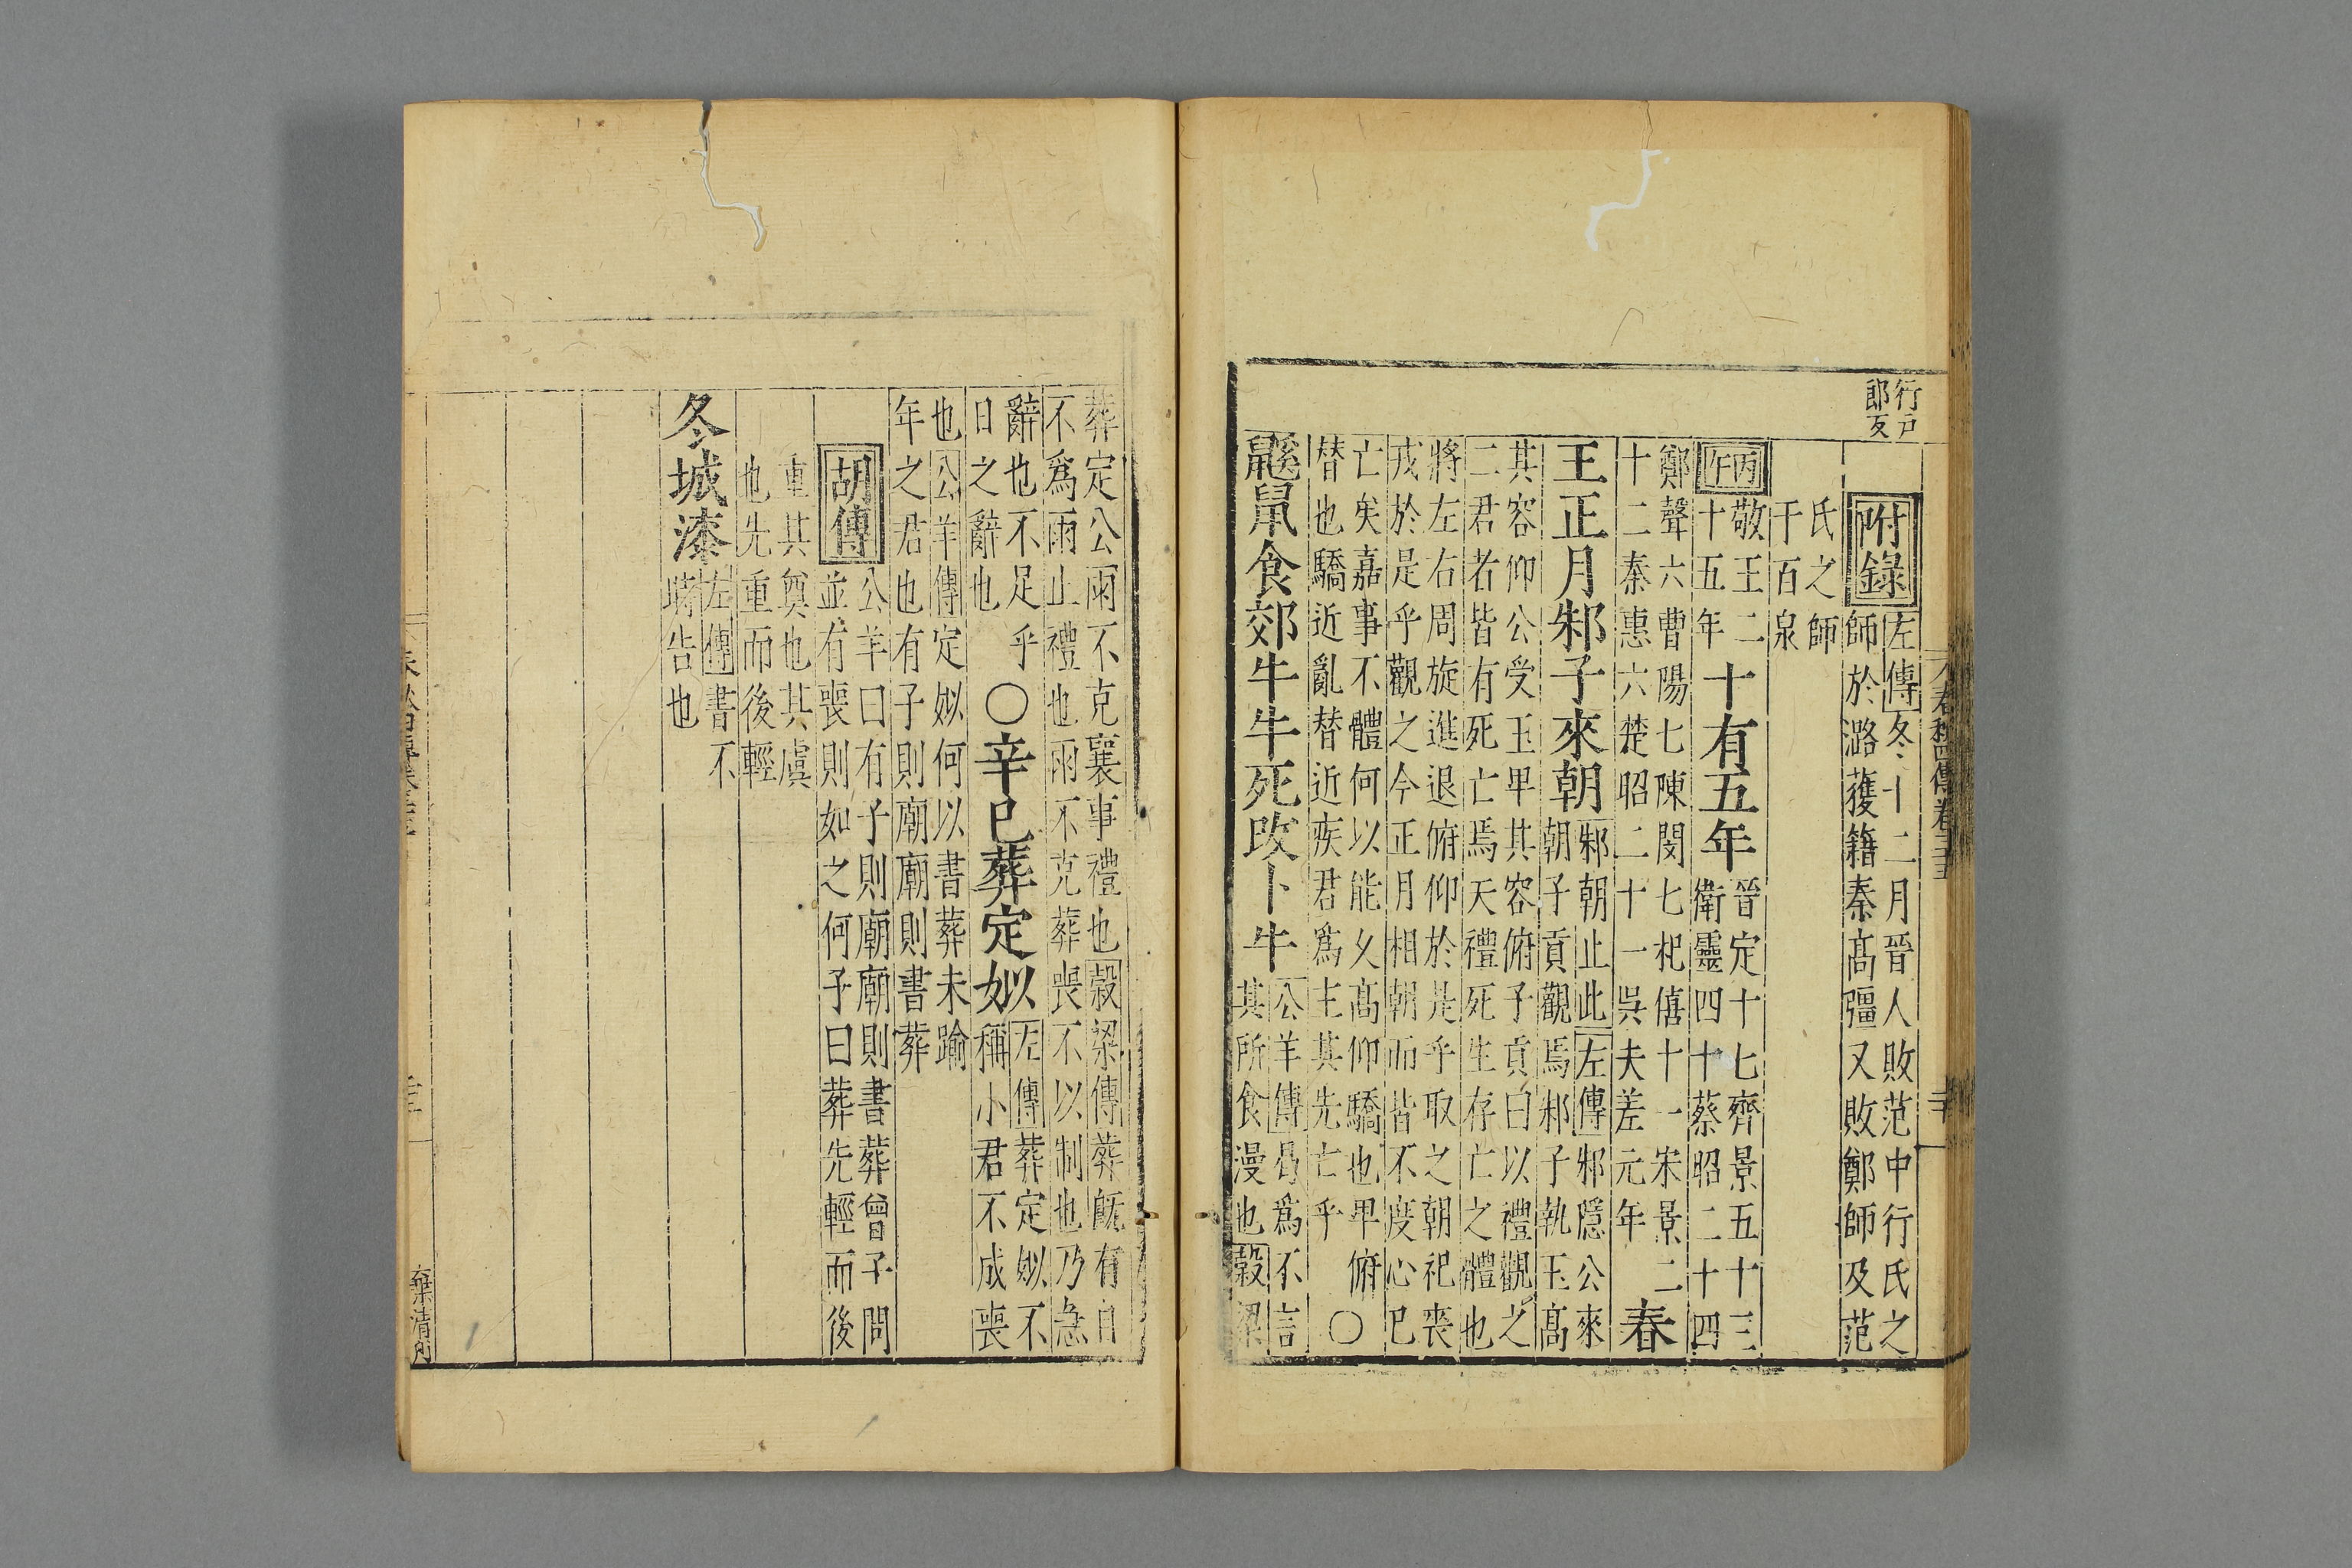 行戸
郎反
春秋四傳卷三十五
附錄
左傳冬十二月晉人敗范中行氏之
師於潞獲籍秦高彊又敗鄭師及范
氏之師
于百泉
丙午
敬王二
十五年
十有五年
晉定十七齊景五十三
衛靈四十蔡昭二十四
鄭聲六曹陽七陳閔七杞僖十一宋景二
十二秦惠六楚昭二十一吳夫差元年
春
王正月邾子來朝
邾朝止此左傳邾隱公來
朝子貢觀焉邾子執玉高
其容仰公受玉卑其容俯子貢曰以禮觀之
二君若皆有死亡焉夫禮死生存亡之體也
將左右周旋進退俯仰於是乎取之朝祀喪
戎於是乎觀之今正月相朝而皆不度心已
亡矣嘉事不體何以能久高仰驕也卑俯
替也驕近亂替近疾君爲主其先亡乎
○
鼷鼠食郊牛牛死改卜牛
公羊傳曷爲不言
其所食漫也穀梁
葬定公雨不克襄事禮也穀梁傳葬既有日
不爲雨止禮也雨不克葬喪不以制也乃急
辭也不足乎
日之辭也
○辛巳葬定姒
左傳葬定姒不
稱小君不成喪
也公羊傳定姒何以書葬未踰
年之君也有子則廟廟則書葬
胡傳
公羊曰有子則廟廟則書葬曾子問
並有喪則如之何子曰葬先輕而後
重其奠也其虞
也先重而後輕
冬城漆
左傳書不
時告也
葉清刊